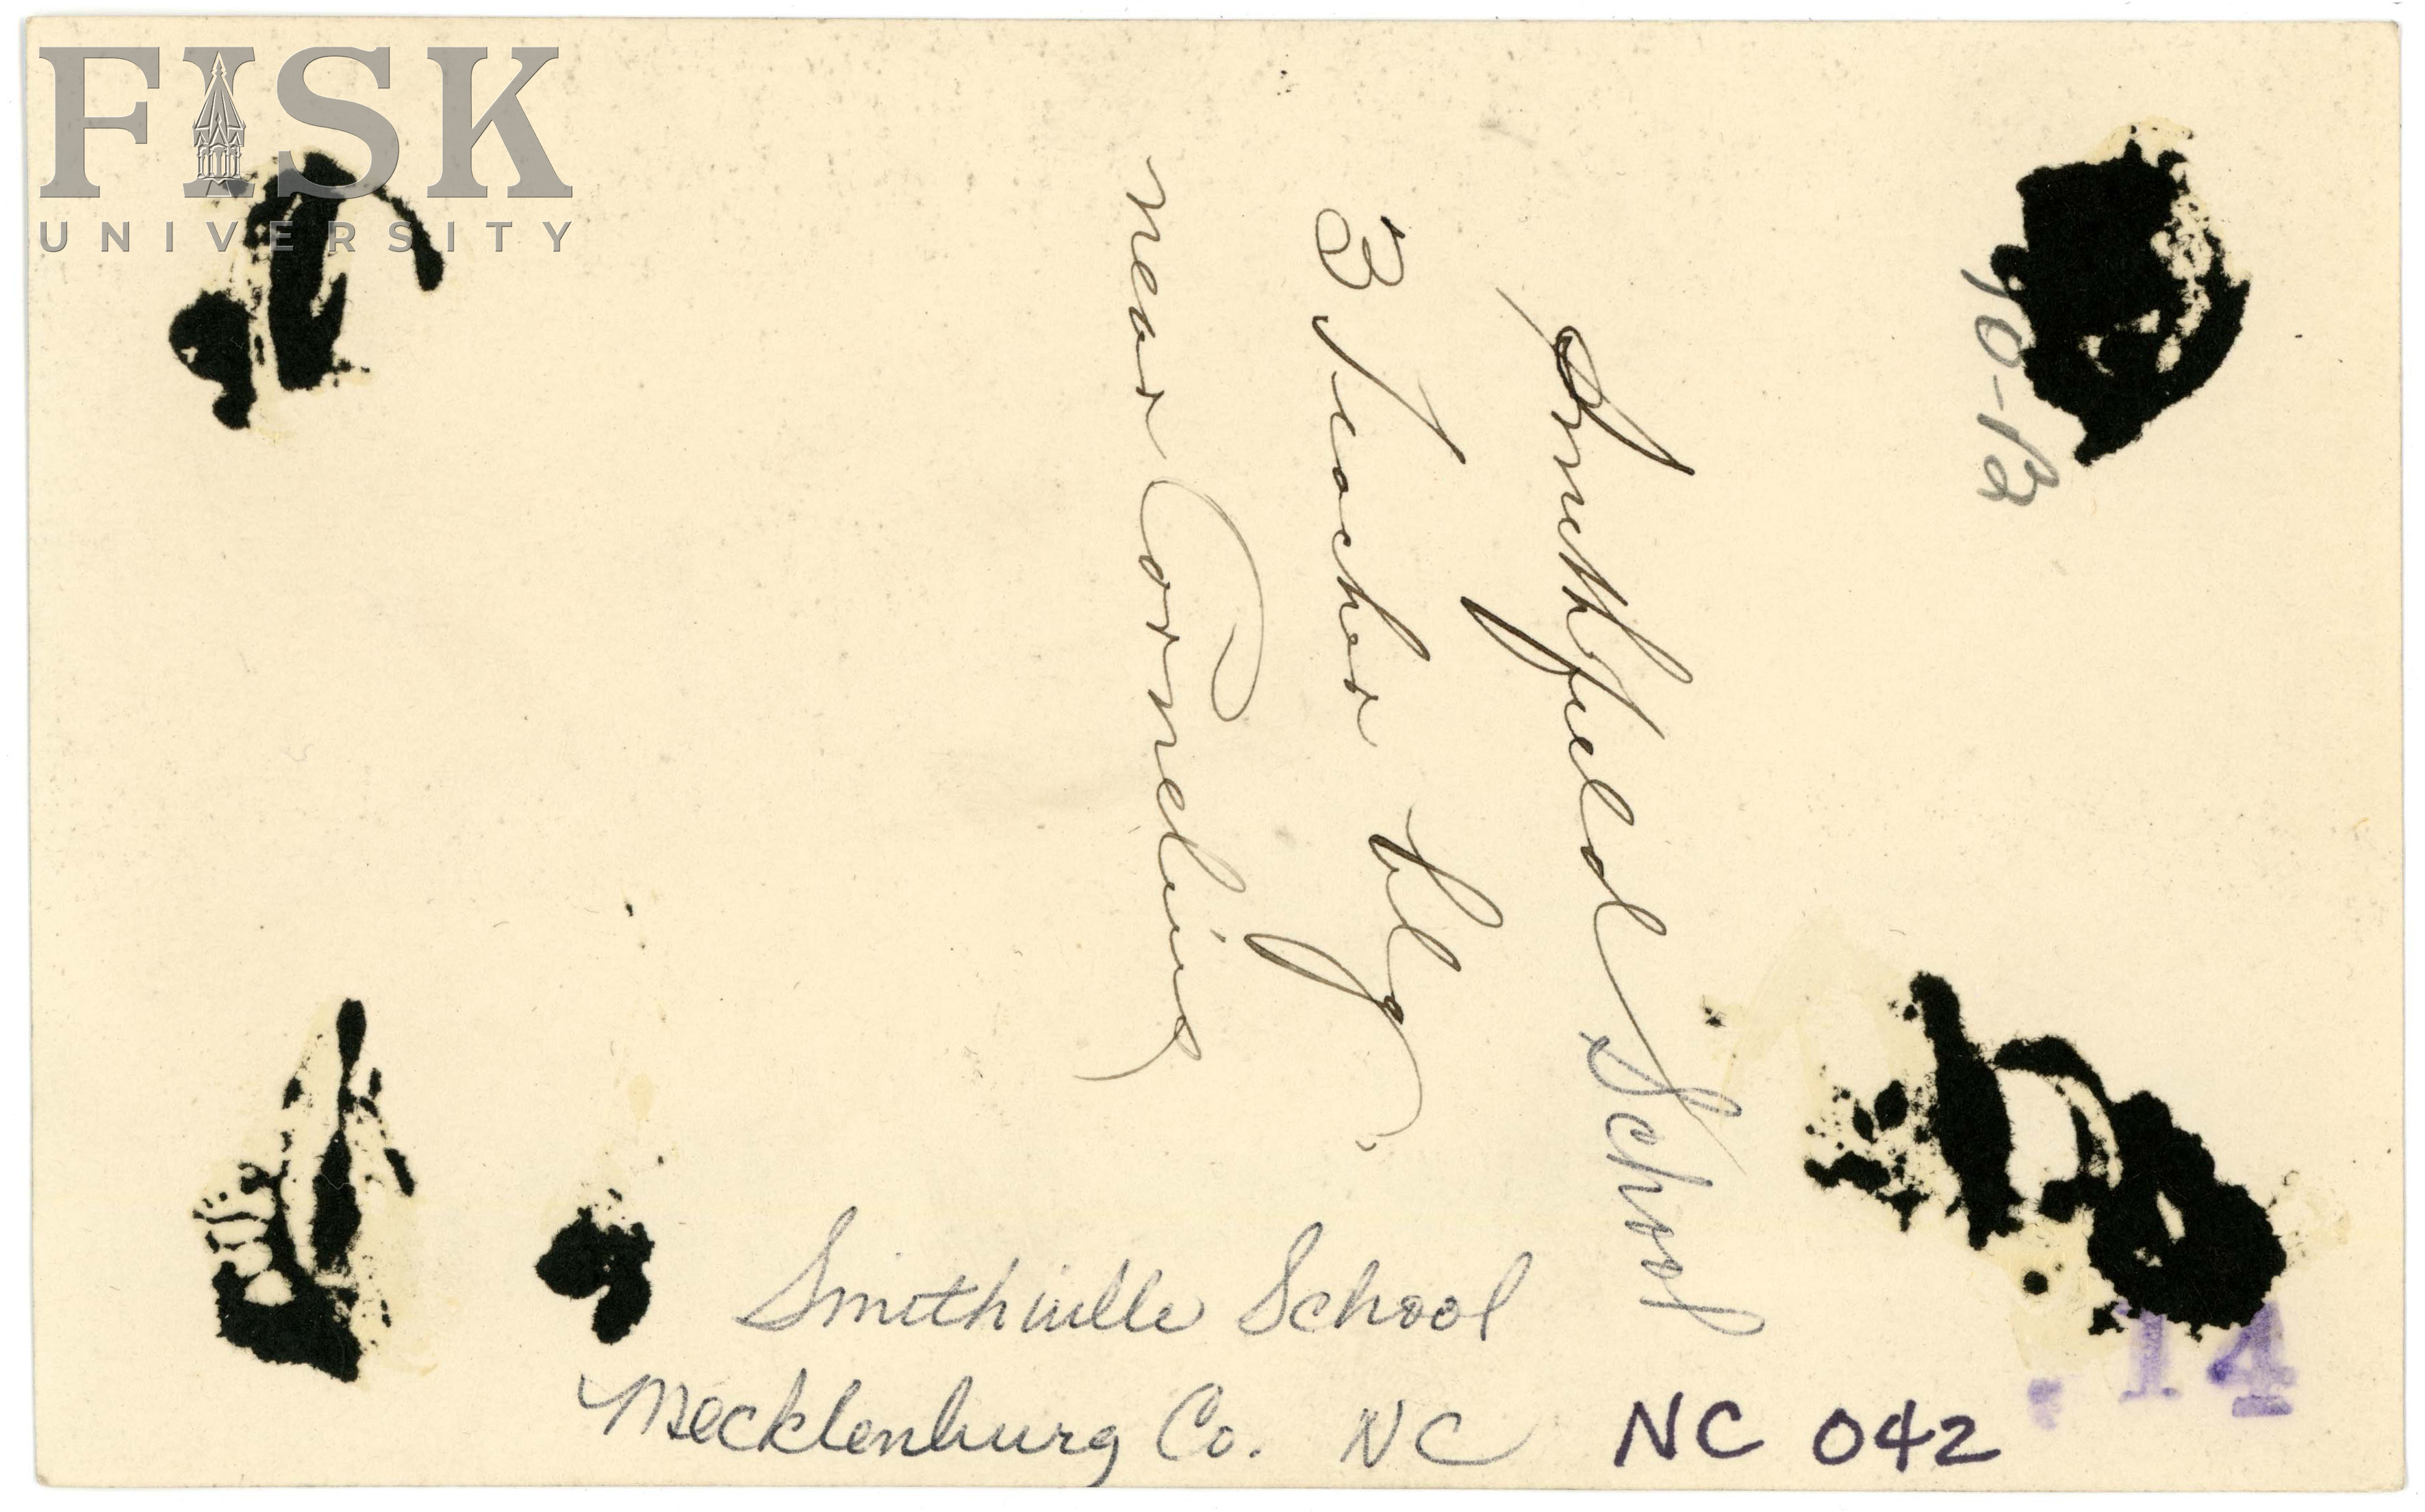 FISK
UNIVERSITY
90-B
Smithfield School
3 Teacher bldg.
near Cornelius
Smithville School
Mecklenburg Co. NC
NC 042
14